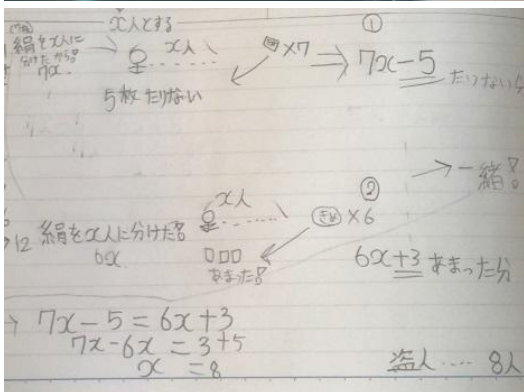 x人とする
①
絹をx人に
分けたから
7x.
x人
×7
7x-5 たりない分
5枚たりない
②
一緒!
x人
きぬ×6
12 絹をx人に分けた!
6x
あまった!
6x+3 あまった分
7x-5=6x+3
7x-6x=3+5
x=8
盗人....8人